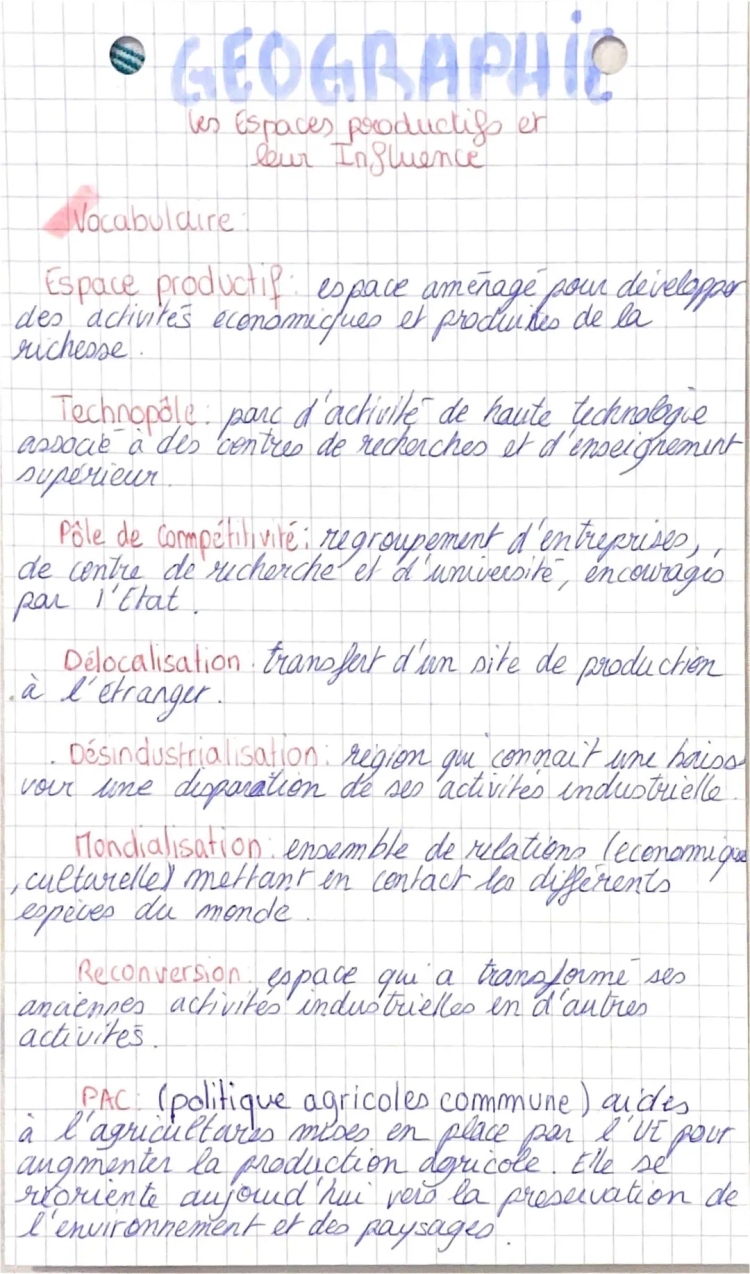 GEOGRAPHIE
les Espaces productifs et
leur Influence
Vocabulaire :
Espace productif : espace aménagé pour développer
des activités économiques et produites de la
richesse.
Technopôle : parc d'activité de haute technologie
associé à des centres de recherches et d'enseignement
supérieur.
Pôle de compétitivité : regroupement d'entreprises,
de centre de recherche et d'université, encouragés
par l'Etat.
Délocalisation : transfert d'un site de production
à l'étranger.
Désindustrialisation : région qui connait une baisse
voir une disparation de ses activités industrielle.
Mondialisation : ensemble de relations (economique
, culturelle) mettant en contact les différents
espèces du monde.
Reconversion : espace qui a transformé ses
anciennes activités industrielles en d'autres
activités.
PAC : (politique agricoles commune) aides
à l'agricultares mises en place par l'UE pour
augmenter la production agricole. Elle se
réoriente aujourd'hui vers la preservation de
l'environnement et des paysages.